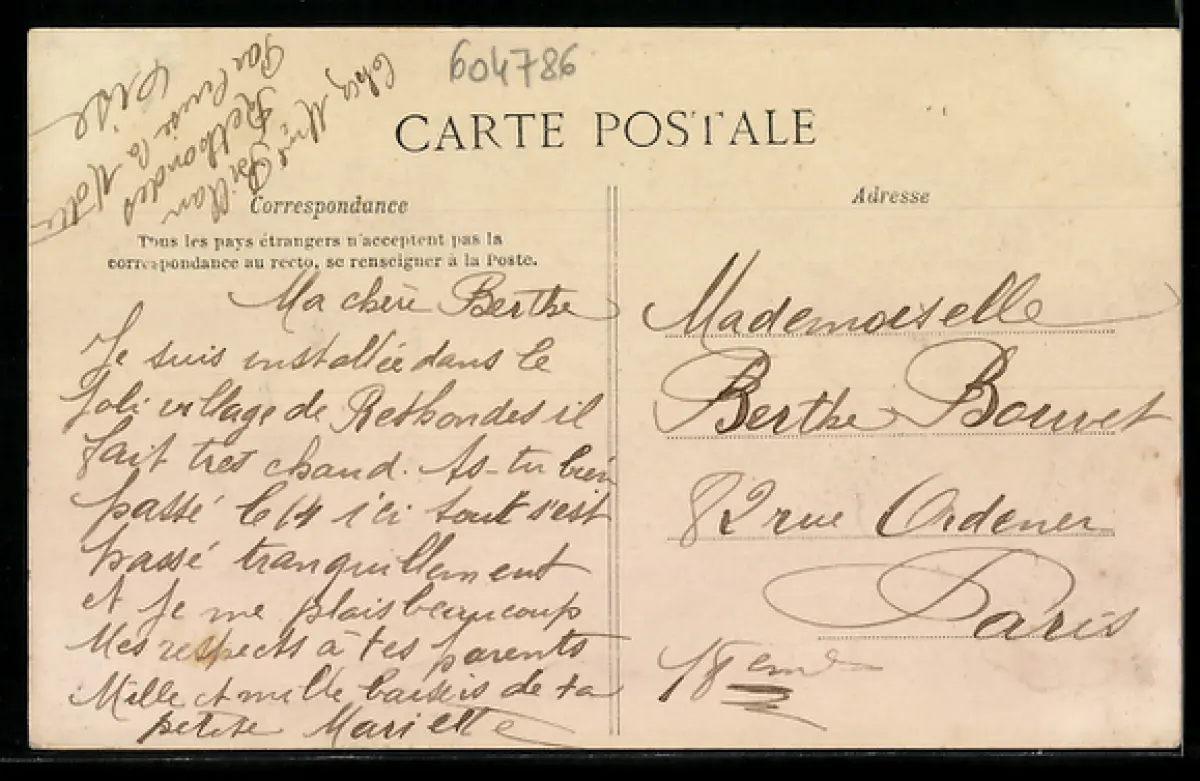 604786
Chez Mme Billan
Rethondes
Par Cuise la Motte
Oise
CARTE POSTALE
Correspondance
Tous les pays étrangers n'acceptent pas la
correspondance au recto, se renseigner à la Poste.
Ma chère Berthe
Je suis installée dans le
joli village de Rethondes il
fait très chaud. As-tu bien
passé le 14 ici tout s'est
passé tranquillement
et je me plais beaucoup
Mes respects à tes parents
Mille et mille baisers de ta
petite Mariette
Adresse
Mademoiselle
Berthe Bouvet
82 rue Ordener
Paris
18eme